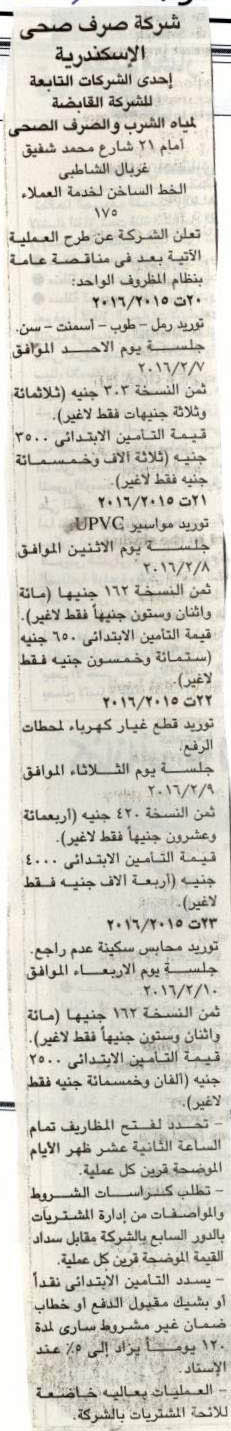 شركة صرف صحى
الإسكندرية
إحدى الشركات التابعة
للشركة القابضة
لمياه الشرب والصرف الصحى
أمام ٢١ شارع محمد شفيق
غربال الشاطبى
الخط الساخن لخدمة العملاء
١٧٥
تعلن الشركة عن طرح العملية
الآتية بعد فى مناقصة عامة
بنظام المظروف الواحد:
٢٠ت ٢٠١٦/٢٠١٥
توريد رمل – طوب – أسمنت – سن.
جلسة يوم الاحد الموافق
٢٠١٦/٢/٧
ثمن النسخة ٣٠٣ جنيه (ثلاثمائة
وثلاثة جنيهات فقط لاغير).
قيمة التأمين الابتدائى ٣٥٠٠
جنيه (ثلاثة آلاف وخمسمائة
جنيه فقط لاغير).
٢١ت ٢٠١٦/٢٠١٥
توريد مواسير UPVC
جلسة يوم الاثنين الموافق
٢٠١٦/٢/٨
ثمن النسخة ١٦٢ جنيها (مائة
واثنان وستون جنيهاً فقط لاغير).
قيمة التأمين الابتدائى ٦٥٠ جنيه
(ستمائة وخمسون جنيه فقط
لاغير).
٢٢ت ٢٠١٦/٢٠١٥
توريد قطع غيار كهرباء لمحطات
الرفع.
جلسة يوم الثلاثاء الموافق
٢٠١٦/٢/٩
ثمن النسخة ٤٢٠ جنيه (أربعمائة
وعشرون جنيهاً فقط لاغير).
قيمة التأمين الابتدائى ٤٠٠٠
جنيه (أربعة آلاف جنيه فقط
لاغير).
٢٣ت ٢٠١٦/٢٠١٥
توريد محابس سكينة عدم راجع.
جلسة يوم الاربعاء الموافق
٢٠١٦/٢/١٠
ثمن النسخة ١٦٢ جنيها (مائة
واثنان وستون جنيهاً فقط لاغير).
قيمة التأمين الابتدائى ٢٥٠٠
جنيه (ألفان وخمسمائة جنيه فقط
لاغير).
– تحدد لفتح المظاريف تمام
الساعة الثانية عشر ظهر الأيام
الموضحة قرين كل عملية.
– تطلب كراسات الشروط
والمواصفات من إدارة المشتريات
بالدور السابع بالشركة مقابل سداد
القيمة الموضحة قرين كل عملية.
– يسدد التأمين الابتدائى نقداً
أو بشيك مقبول الدفع أو خطاب
ضمان غير مشروط سارى لمدة
١٢٠ يوماً يزاد إلى ٥٪ عند
الإسناد.
– العمليات بعاليه خاضعة
للائحة المشتريات بالشركة.